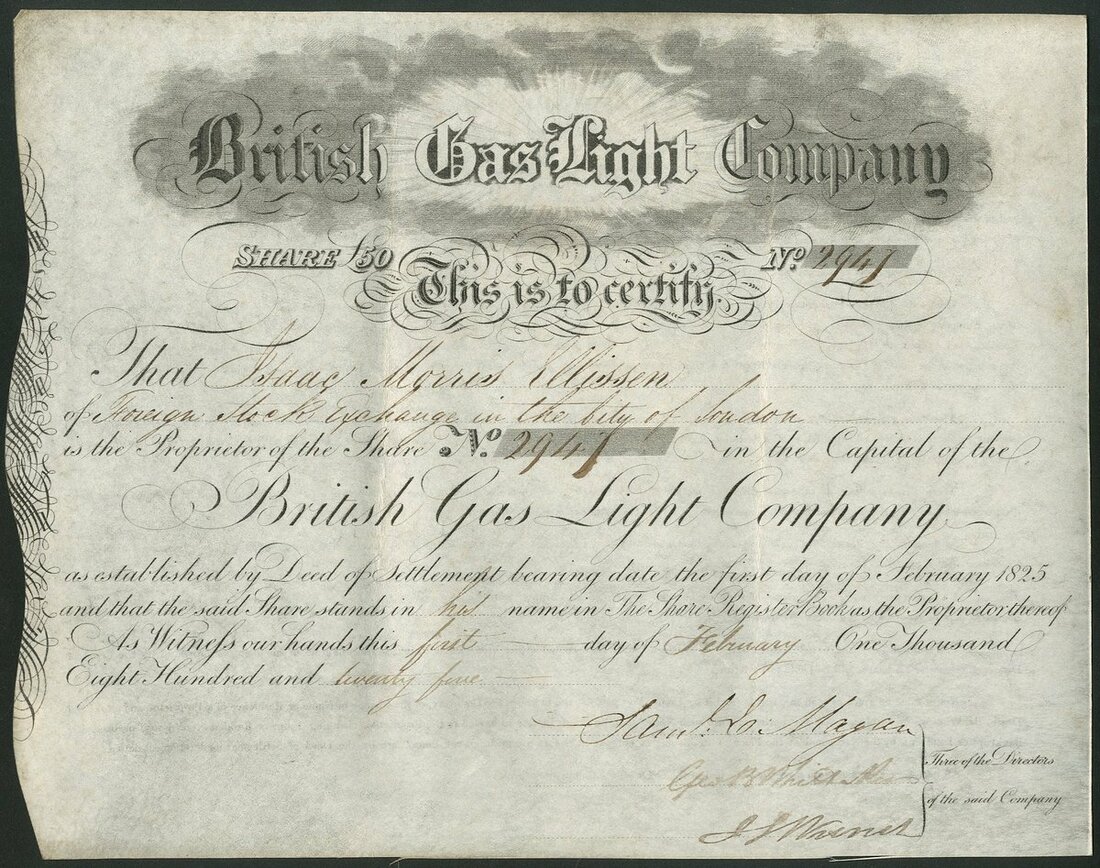 British Gas Light Company
SHARE £50 No. 2947
This is to certify.
That Isaac Morris Ellissen
of Foreign Stock Exchange in the City of London
is the Proprietor of the Share No. 2947 in the Capital of the
British Gas Light Company
as established by Deed of Settlement bearing date the first day of February 1825
and that the said Share stands in his name in The Share Register Book as the Proprietor thereof
As Witneſs our hands this first day of February One Thousand
Eight Hundred and twenty five
Saml. L. Magan
Geo B Whittaker
Three of the Directors
of the said Company